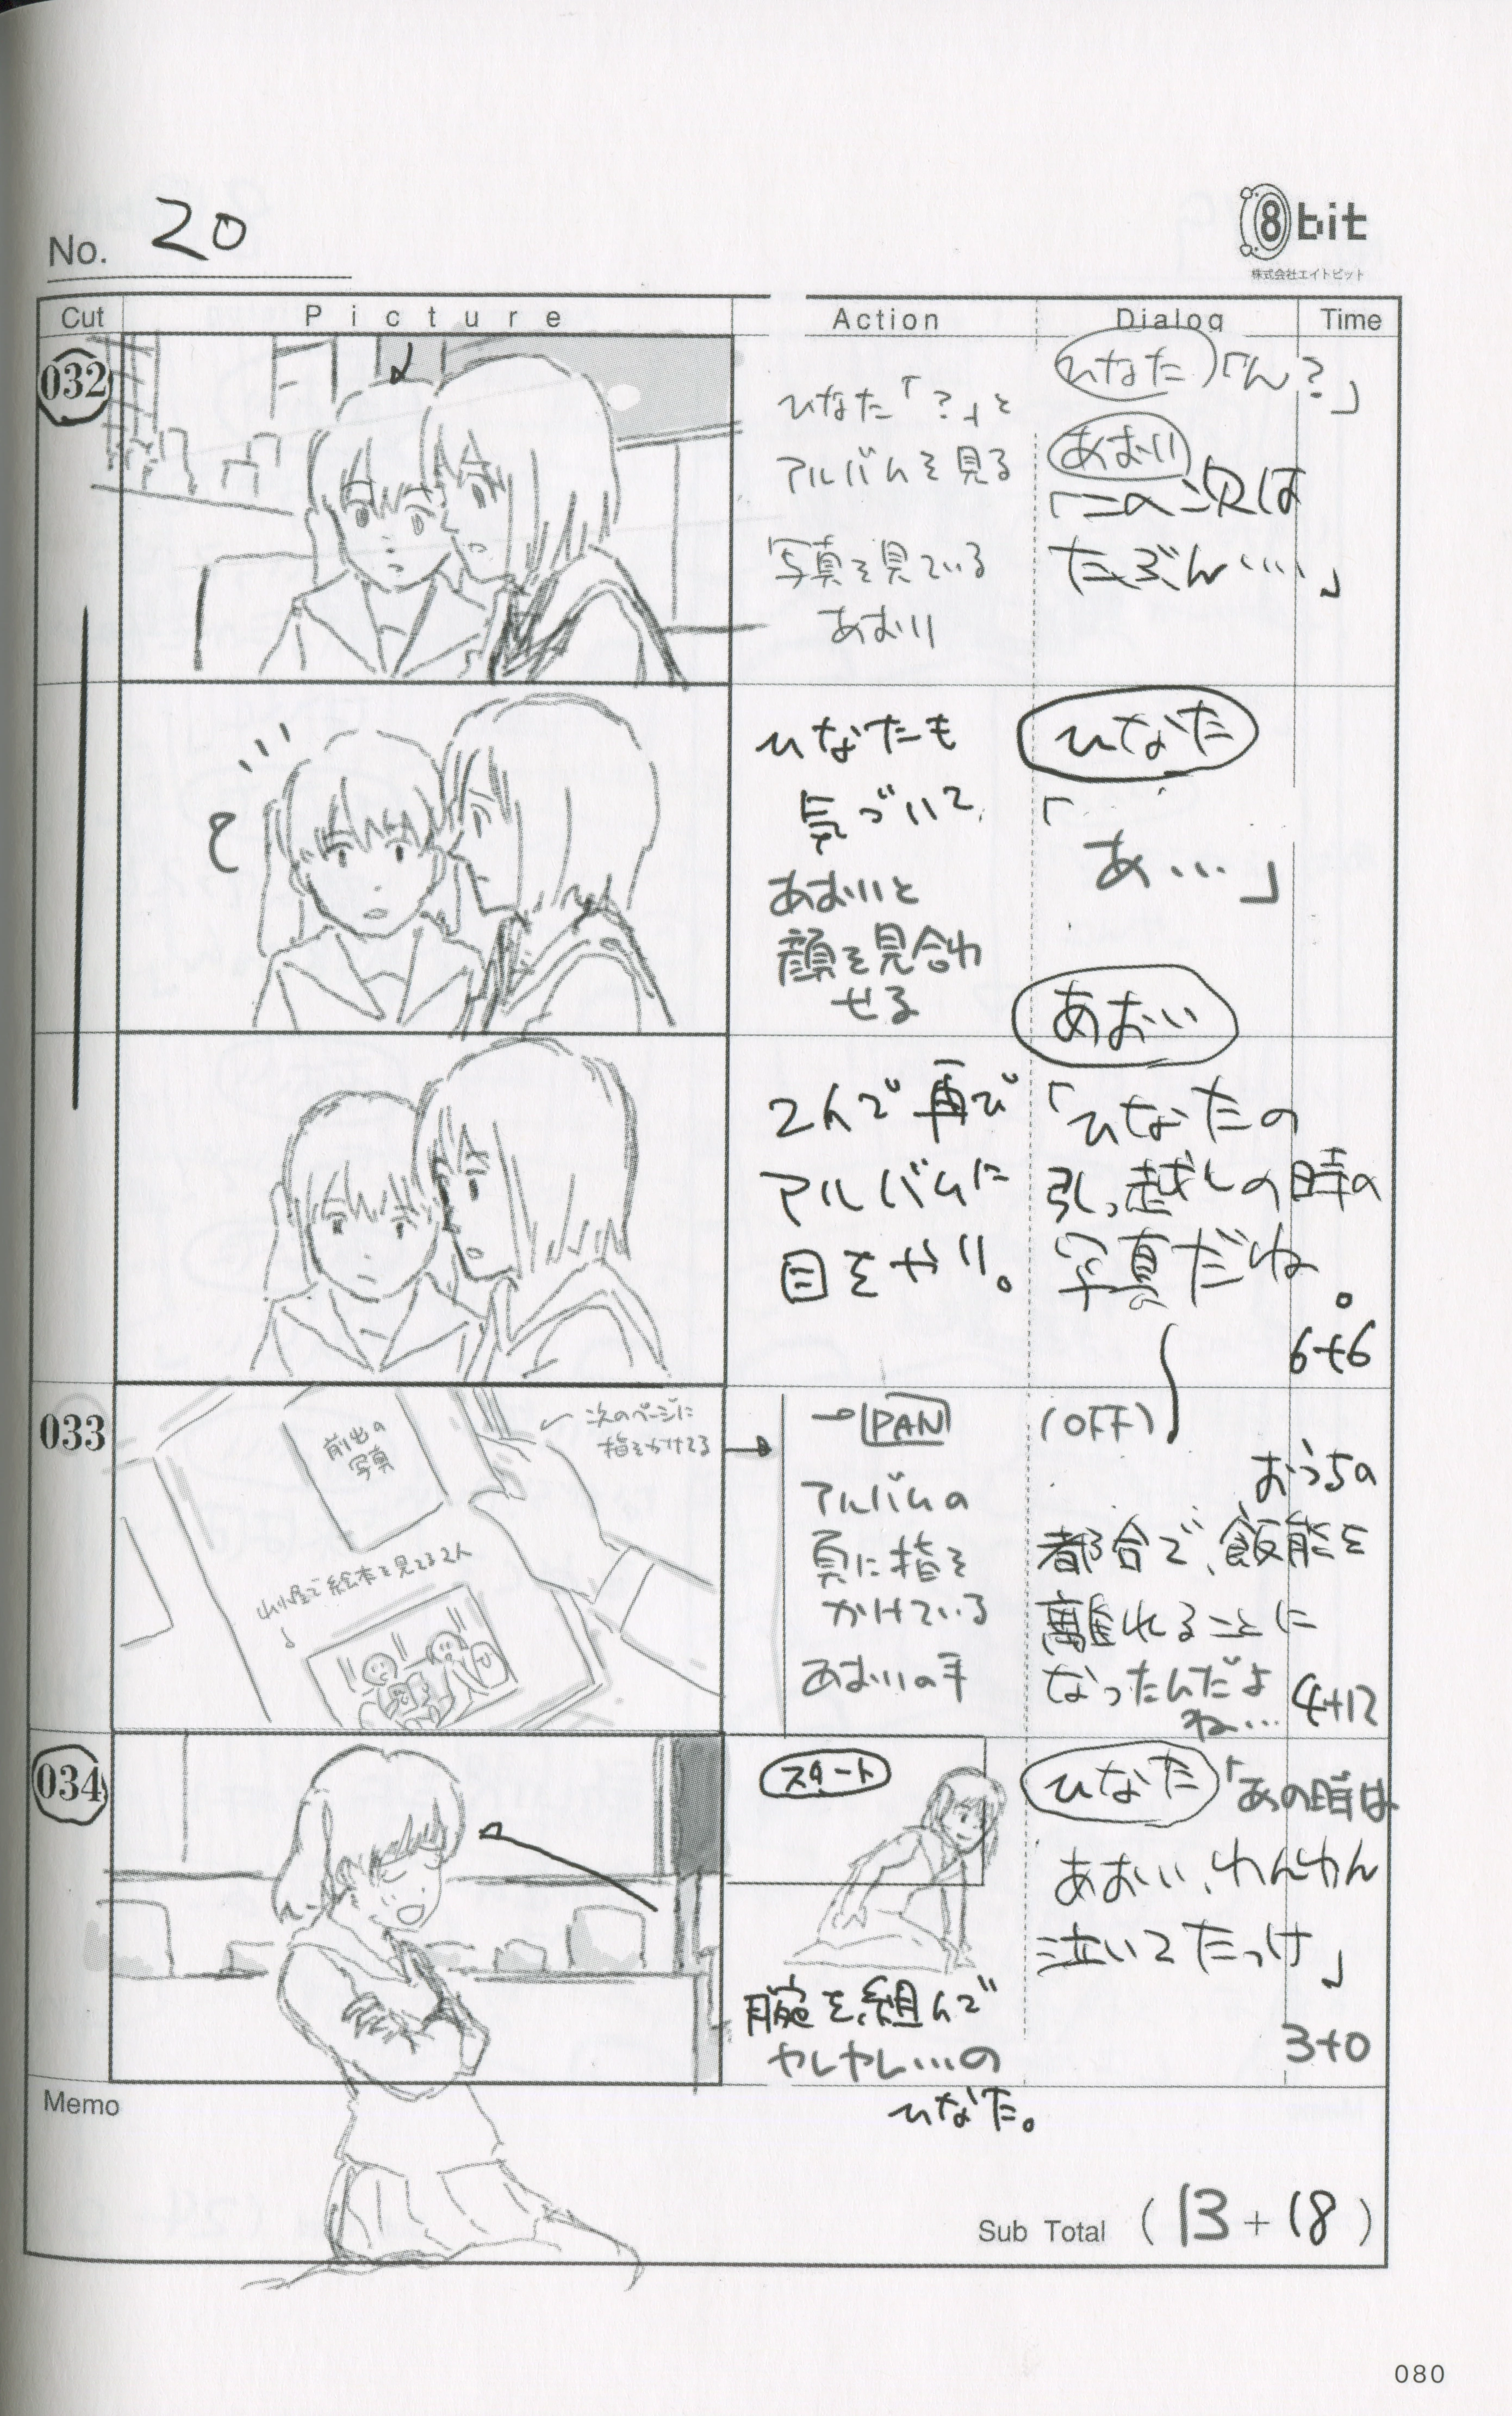 No. 20
8bit
株式会社エイトビット
Cut Picture Action Dialog Time
032
ひなた「?」と
アルバムを見る
写真を見ている
あおい
ひなた「ん?」
あおい
「この次は
たぶん…」
ひなたも
気づいて
あおいと
顔を見合わ
せる
ひなた
「あ…」
あおい
2人で再び
アルバムに
目をやり。
「ひなたの
引っ越しの時の
写真だね。
6+6
033
前出の
写真
次のページに
指をかけてる
山小屋で絵本を見てる2人
PAN
アルバムの
頁に指を
かけている
あおいの手
(OFF)
おうちの
都合で、飯能を
離れることに
なったんだよ
ね…
4+12
034
スタート
腕を組んで
ヤレヤレ…の
ひなた。
ひなた「あの時は
あおい、わんわん
泣いてたっけ」
3+0
Memo
Sub Total (13+18)
080